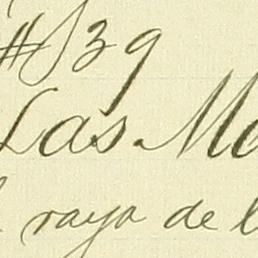 #539
Las Mo
raya de l